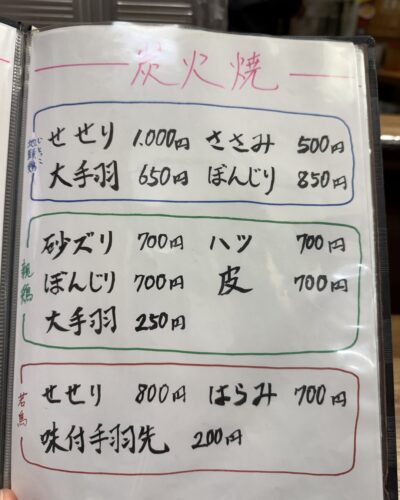 炭火焼
地頭鶏
せせり 1.000円 ささみ 500円
大手羽 650円 ぼんじり 850円
親鶏
砂ズリ 700円 ハツ 700円
ぼんじり 700円 皮 700円
大手羽 250円
若鳥
せせり 800円 はらみ 700円
味付手羽先 200円